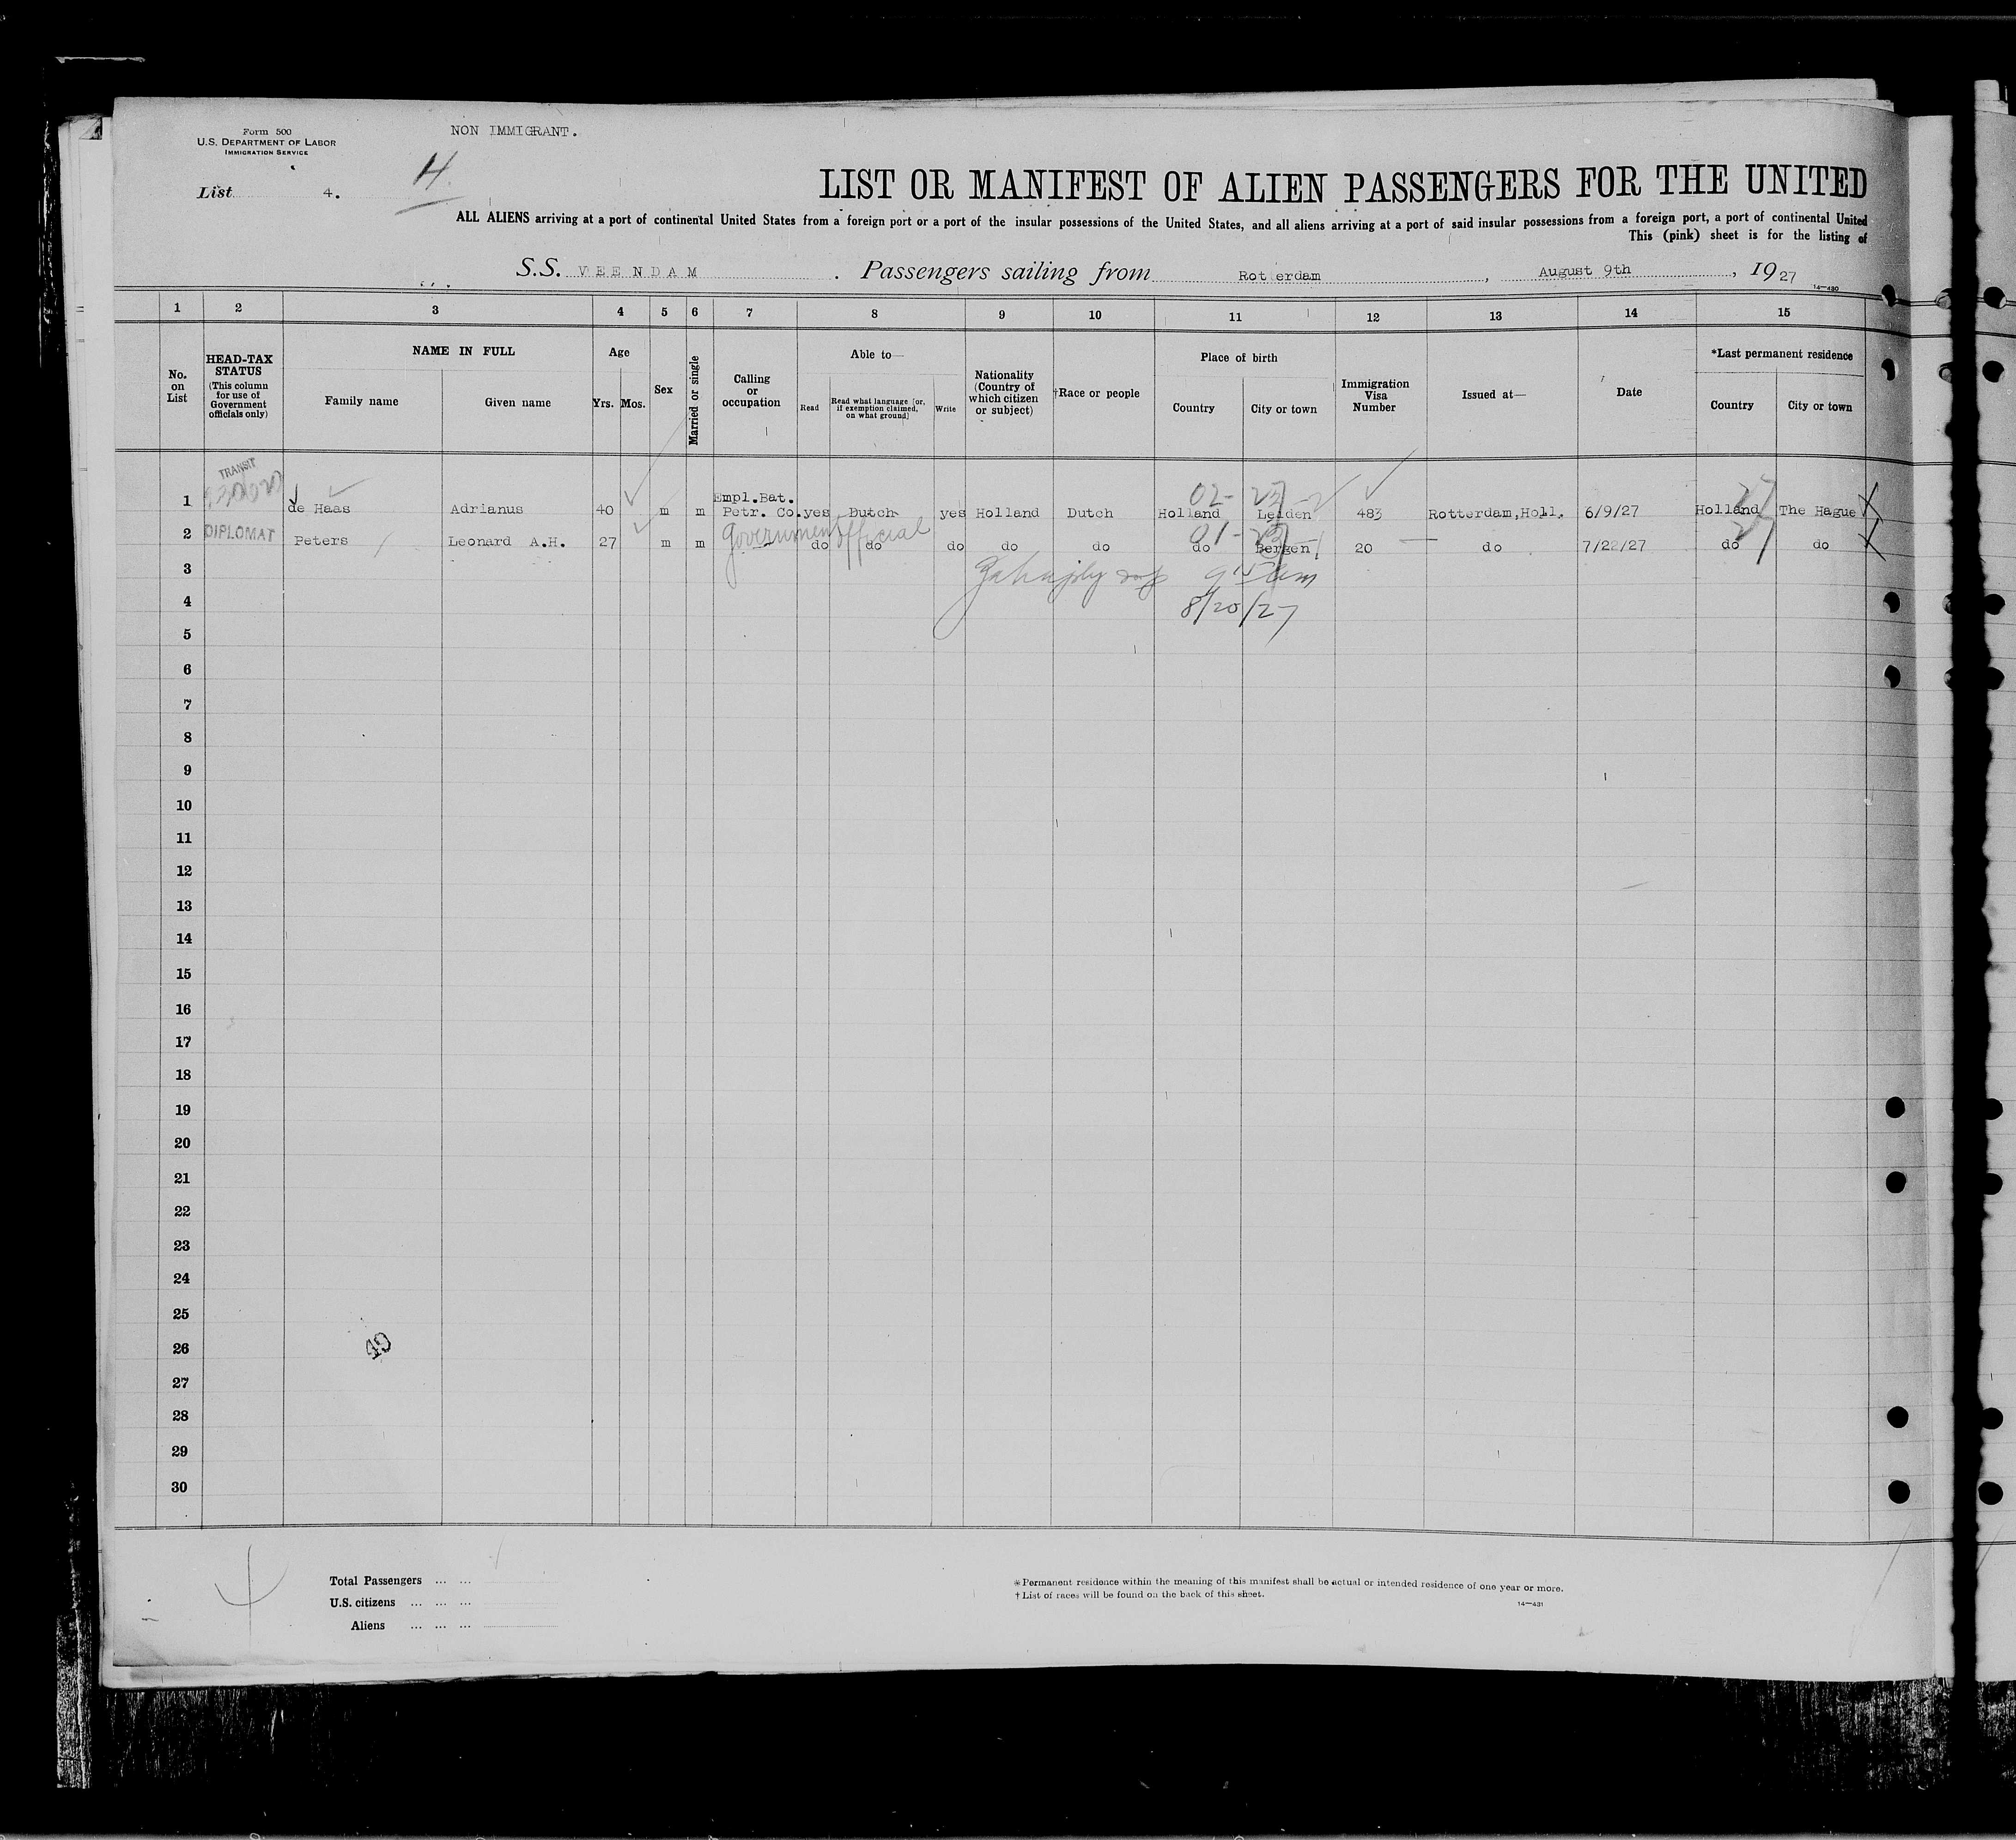 Form 500
U.S. DEPARTMENT OF LABOR
IMMIGRATION SERVICE
NON IMMIGRANT.
List 4.
H
LIST OR MANIFEST OF ALIEN PASSENGERS FOR THE UNITED
ALL ALIENS arriving at a port of continental United States from a foreign port or a port of the insular possessions of the United States, and all aliens arriving at a port of said insular possessions from a foreign port, a port of continental United
This (pink) sheet is for the listing of
S.S. VEENDAM . Passengers sailing from Rotterdam , August 9th , 1927
14—430
1 2 3 4 5 6 7 8 9 10 11 12 13 14 15
No. on List
HEAD-TAX STATUS
(This column for use of Government officials only)
NAME IN FULL
Family name Given name
Age
Yrs. Mos.
Sex
Married or single
Calling or occupation
Able to—
Read Read what language [or, if exemption claimed, on what ground] Write
Nationality (Country of which citizen or subject)
†Race or people
Place of birth
Country City or town
Immigration Visa Number
Issued at—
Date
*Last permanent residence
Country City or town
TRANSIT
02- 27
1 de Haas Adrianus 40 m m Empl.Bat. Petr. Co. yes Dutch yes Holland Dutch Holland Leiden 483 Rotterdam,Holl. 6/9/27 Holland The Hague
2 DIPLOMAT Peters Leonard A.H. 27 m m Government official do do do do do do Bergen 20 do 7/22/27 do do
3
4 8/20/27
5
6
7
8
9
10
11
12
13
14
15
16
17
18
19
20
21
22
23
24
25
26
49
27
28
29
30
Total Passengers ... ...
U.S. citizens ... ... ...
Aliens ... ... ...
*Permanent residence within the meaning of this manifest shall be actual or intended residence of one year or more.
†List of races will be found on the back of this sheet.
14—431